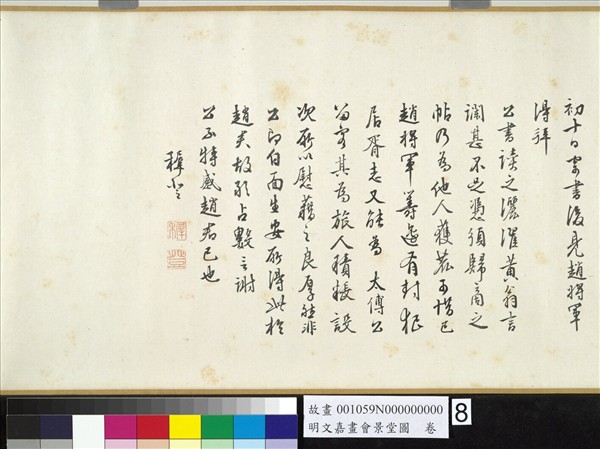 初十日寄書後見趙將軍
得拜
公書讀之灑灑黃翁言
調甚不必憑須歸商之
帖乃為他人獲甚可惜已
趙將軍籌邊有封狂
居胥志又能為太傅公
留客其為旅人積餱設
次所以慰藉之良厚然非
公即白面生安所得此於
趙夫故敢占數言謝
公不特感趙君已也
穉登
故畫 001059N000000000
明文嘉畫會景堂圖 卷
8